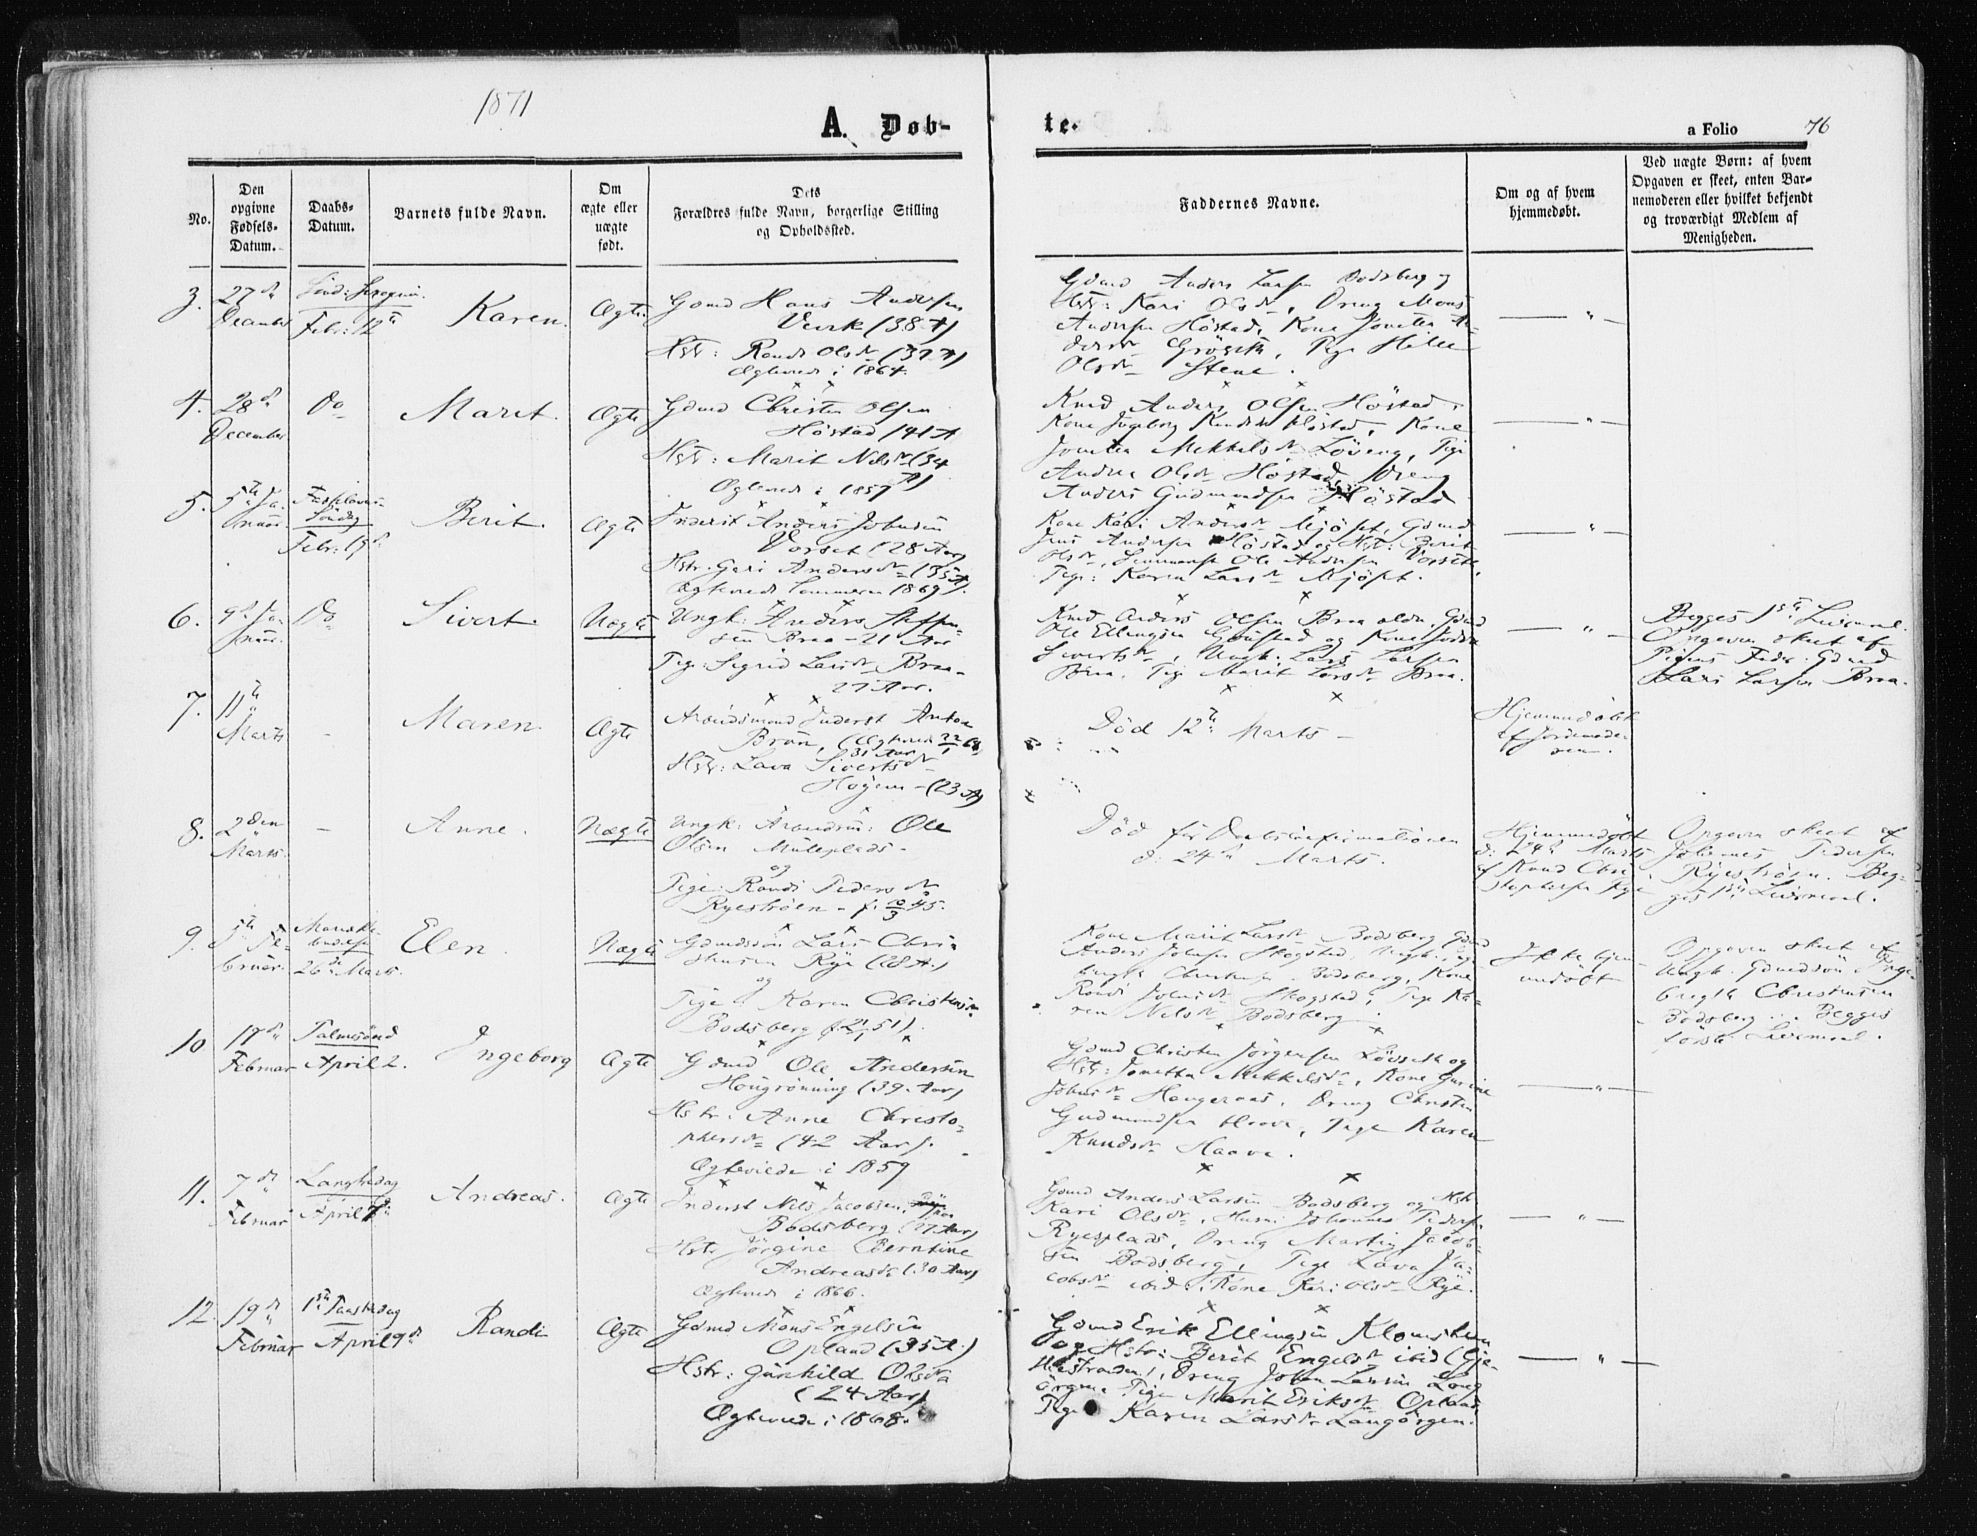 1871
A. Døb-
te.
a Folio 76
No.
Den
opgivne
Fødsels-
Datum.
Daabs-
Datum.
Barnets fulde Navn.
Om
ægte eller
uægte
født.
Dets
Forældres fulde Navn, borgerlige Stilling
og Opholdssted.
Faddernes Navne.
Om og af hvem
hjemmedøbt.
Ved uægte Børn: af hvem
Opgaven er skeet, enten Bar-
nemoderen eller hvilket bekjendt
og troværdigt Medlem af
Menigheden.
3.
27de
December
Febr: 12te
Karen.
Ægte.
Gdmd Hans Andersen
(38 A)
Hstr: Randi Olsdr (37 A)
Ægteviede i 1864.
Gdmd Anders Larsen Bodsberg og
Hstr: Kari Olsdr, Dreng Mons
Andersen Höstad, Kone
Pige
Olsdr Stene.
4.
28de
December
Do
Marit.
Ægte
Gdmd Christen Olsen
Höstad (41 A
Hstr: Marit Nilsdr (34
A)
Ægteviede i 1857
Anders Olsen Höstad,
Kone Ingeborg Knudsdr Höstad, Kone
Mikkelsdr Pige
Andrea Olsdr Höstad, Dreng
Anders Gudmundsen Höstad
5.
5te Ja-
nuar.
Fastelavns
Söndag
Febr: 19de
Berit.
Ægte
Inderst Anders Johnsen
Vorset (28 Aar)
Hstr. Guri Andersdr (35 A)
Ægteviede Sommeren 1869.
Kone Kari Andersdr Mjöst, Gdmd
Jens Andersen Höstad og Hstr: Berit
Olsdr, Ole Andersen
Pige: Karen Larsdr Mjöst.
6.
9de Ja-
nuar.
Do
Sivert.
Uægte
Ungk: Anders Steffen-
sen Braa - 21 Aar
Pige: Sigrid Larsdr Braa -
27 Aar.
Anders Olsen Braa Gdmd
Ole Ellingsen og Kone
Sivertsdr, Ungk: Lars Larsen
Braa, Pige Marit Larsdr Braa.
Begges 1ste Leiermaal.
Opgaven skeet af
Pigens Fader Gdmd
Lars Larsen Braa.
7.
11te
Marts
Maren.
Ægte
Arbeidsmand Inderst Anton
Brøn,
31 Aar
Hstr: Lava Sivertsdr
(23 A)
Död 12te Marts -
Hjemmedöbt
af Jordemode-
ren.
8.
2den
Marts.
Anne.
Uægte
Ungk: Arbeidsm: Ole
Olsen
og
Pige: Randi Pedersdr
Ryeströen - f. 10/3 45.
Död før Daabsconfirmationen
d: 24de Marts.
Hjemmedöbt
d: 24de Marts
af Knud Chri-
stophersen Rye
Opgaven skeet af
Johannes Pedersen
Ryeströen. Beg-
ges 1ste Leiermaal.
9.
5te Fe-
bruar.
Mariæ Be-
budelse
26de Marts.
Elen
Uægte
Gdmdssön Lars Chri-
stensen Rye (28 A.)
og
Pige Karen Christensdr
Bodsberg
Kone Marit Larsdr Bodsberg, Gdmd
Anders Johnsen Skogstad, Ungk: Inge-
brigt Christensen Bodsberg, Kone
Randi Johnsdr Skogstad, Pige Ka-
ren Nilsdr Bodsberg.
Ikke hjem-
medöbt
Opgaven skeet af
Ungk. Gdmdssön Inge-
brigt Christensen
Bodsberg ... Begges
første Leiermaal.
10
17de
Februar
Palmesönd
April 2.
Ingeborg
Ægte
Gdmd Ole Andersen
Hougrønning (39 Aar)
Hstr: Anne Christo-
phersdr (42 Aar).
Ægteviede i 1859
Gdmd Christen Jörgensen Løvseth og
Hstr: Jonetta Mikkelsdr, Kone Gurine
Johnsdr Dreng Christen
Gudmundsen Pige Karen
Knudsdr Haave.
11.
7de
Februar
Langfredag
April 7de
Andreas.
Ægte
Inderst Nils Jacobsen,
Bodsberg (27 Aar)
Hstr Jörgine Berntine
Andreasdr (30 Aar)
Ægteviede i 1866.
Gdmd Anders Larsen Bodsberg og Hstr
Kari Olsdr, Johannes Pedersen
Ryesplads, Dreng Martin Jacob-
sen Bodsberg, Pige Lava Ja-
cobsdr ibid., Kone Kari Olsdr Rye.
12.
19de
Februar
1ste Paaskedag
April 9de
Randi
Ægte
Gdmd Mons Engelsen
Opland (35 A.)
Hstr: Gunhild Olsdr
(24 Aar)
Ægteviede i 1868.
Gdmd Erik Ellingsen
og Hstr: Berit Engelsdr ibid
Dreng Johan Larsen Lang-
örgen, Pige Marit Eriksdr Opland,
Pige Karen Larsdr Langörgen.